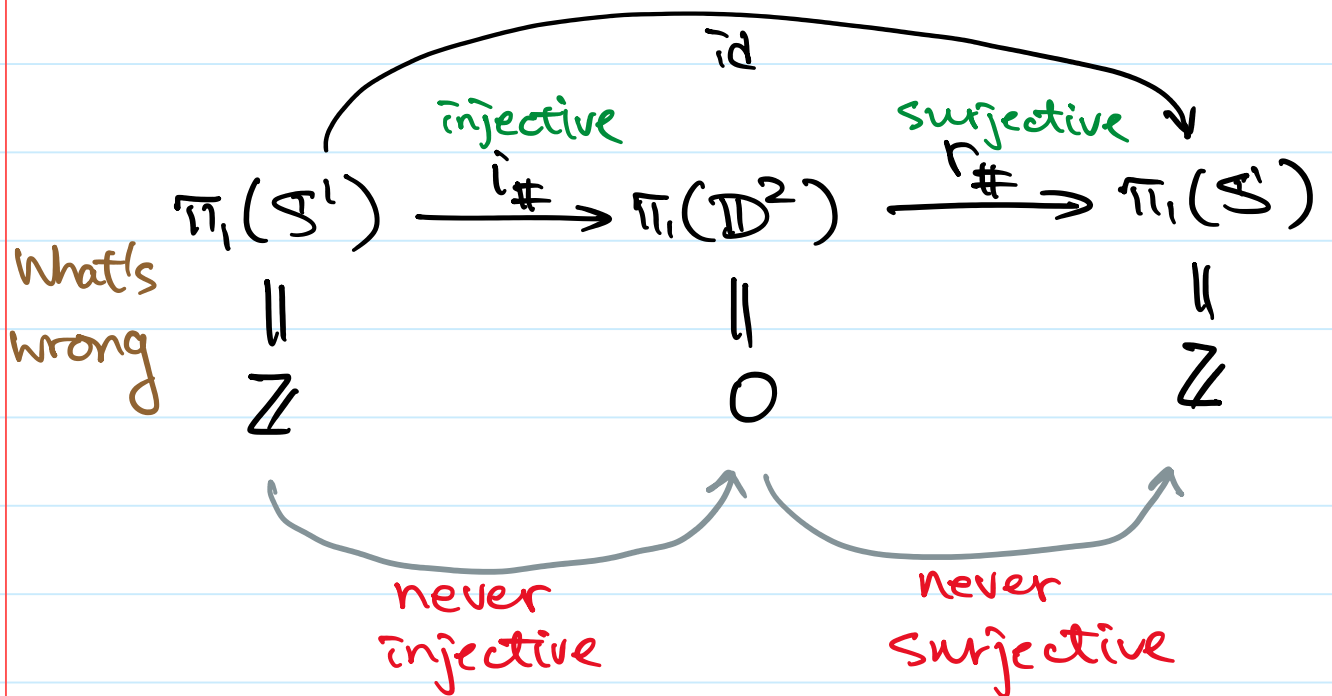 id
injective surjective
i# r#
π₁(𝕊¹) → π₁(𝔻²) → π₁(𝕊¹)
What's
wrong
|| || ||
ℤ 0 ℤ
never never
injective surjective